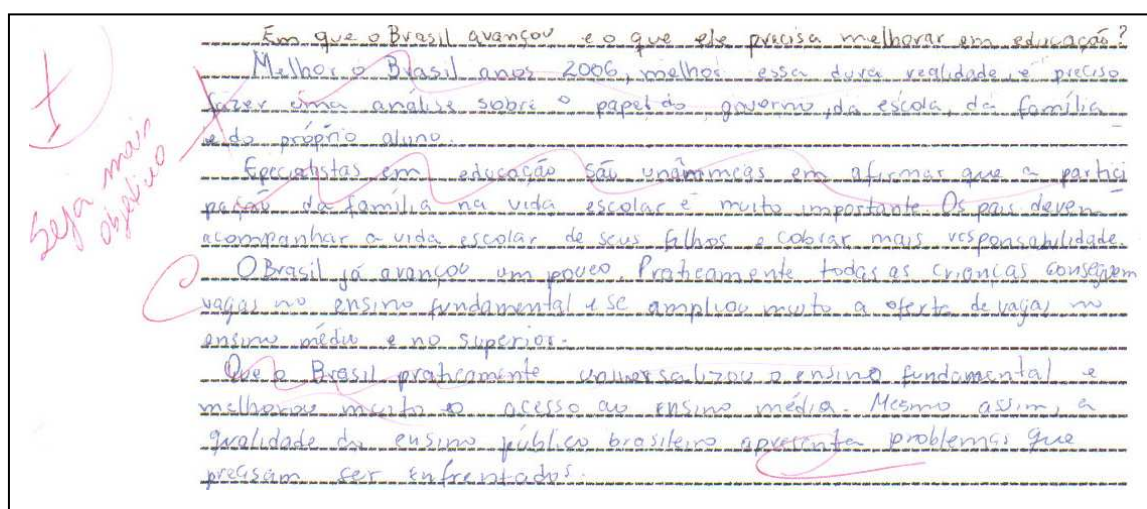 Em que o Brasil avançou e o que ele precisa melhorar em educação?
Melhor o Brasil anos 2006, melhos essa dura realidade, é preciso
fazer uma análise sobre o papel do governo, da escola, da família
e do próprio aluno.
Epecialistas em educação são unânimeas em afirmar que a partici
pação da família na vida escolar é muito importante. Os pais devem
acompanhar a vida escolar de seus filhos e cobrar mais responsabilidade.
O Brasil já avançou um pouco. Praticamente todas as crianças conseguem
vagas no ensino fundamental e se ampliou muito a oferta de vagas no
ensino médio e no superior.
Que o Brasil praticamente universalizou o ensino fundamental e
melhorou muito o acesso ao ensino média. Mesmo assim, a
qualidade do ensino público brasileiro apresenta problemas que
precisam ser enfrentados.
Seja mais
objetivo